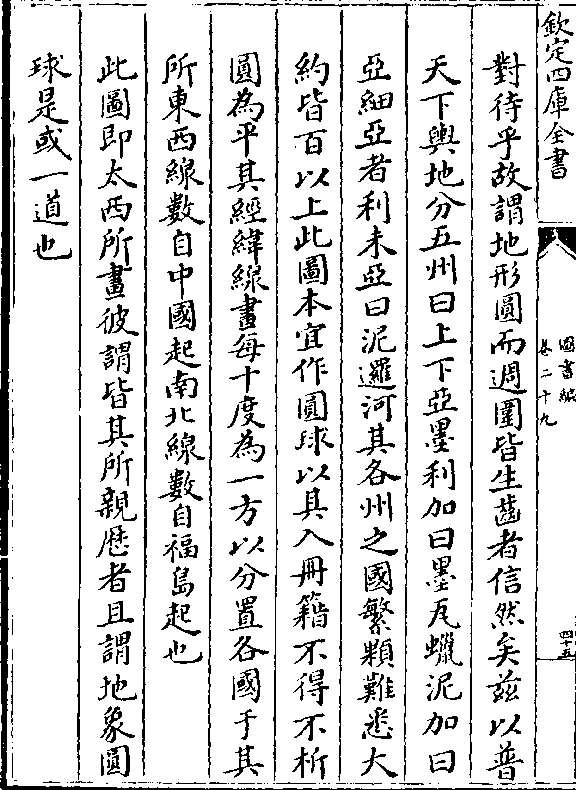 欽定四庫全書
圖書編
卷二十九
四十五
對待乎故謂地形圓而週圍皆生齒者信然矣茲以普
天下輿地分五州曰上下亞墨利加曰墨瓦蠟泥加曰
亞細亞者利未亞曰泥邏河其各州之國繁夥難悉大
約皆百以上此圖本宜作圓球以其入冊籍不得不析
圓為平其經緯線畫每十度為一方以分置各國于其
所東西線數自中國起南北線數自福島起也
此圖即太西所畫彼謂皆其所親歷者且謂地象圓
球是或一道也